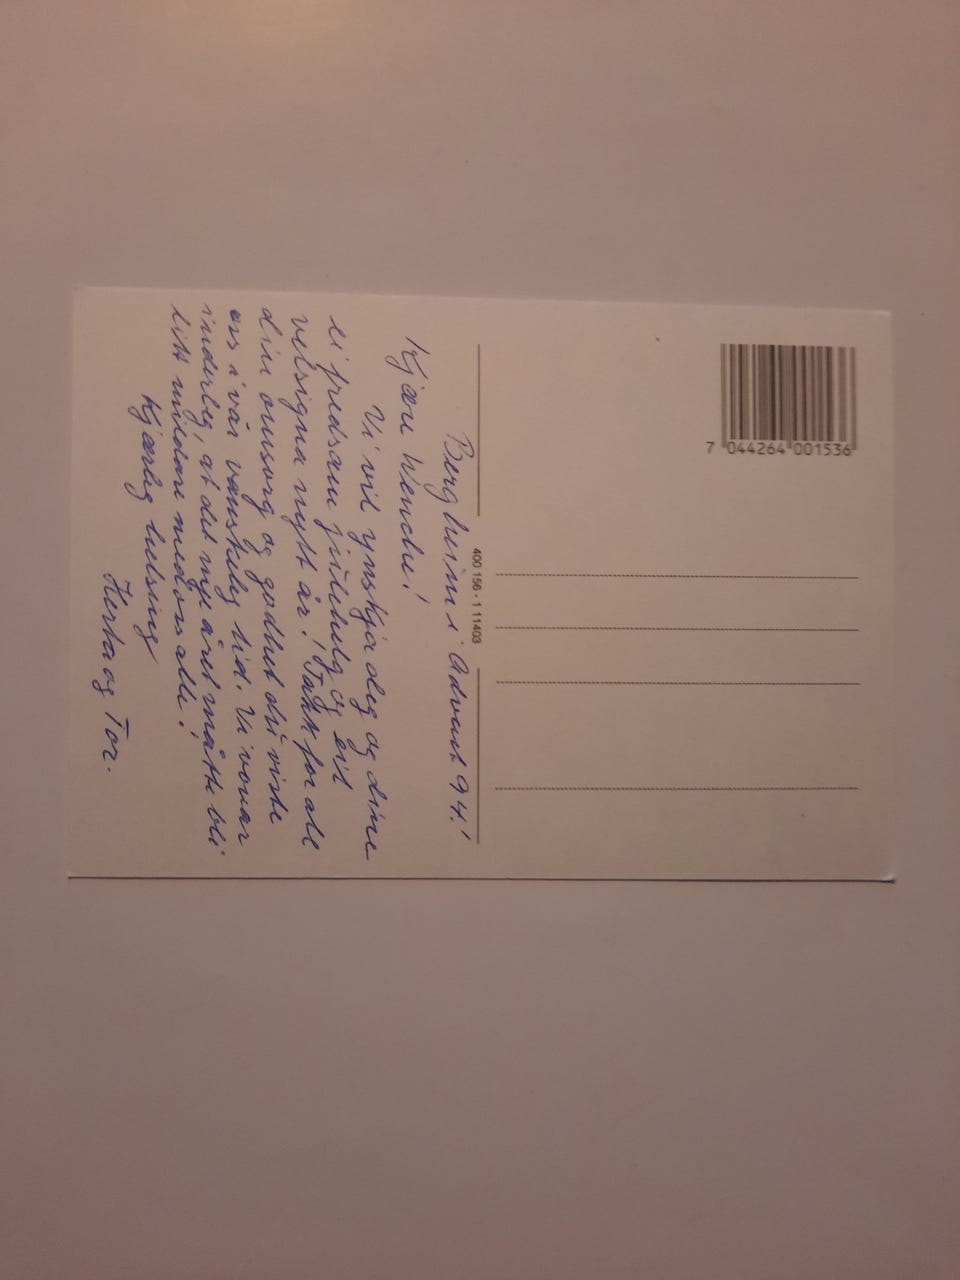 Bergheim i Advent 94!
Kjære Wenche!
Vi vil ynskja deg og dine
ei fredsam julehelg og eit
velsigna nytt år! Takk for all
din omsorg og godhet du viste
oss i vår vanskeleg tid. Vi vonar
inderleg, at det nye året måtte bli
litt mildare med oss alle!
Kjærleg helsing
Herta og Tor.
400 156-1 11403
7 044264 001536